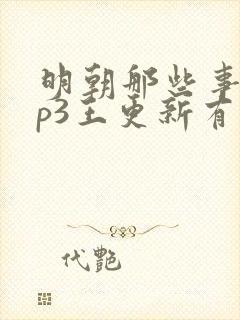 明朝那些事
p3王更新有
代艷